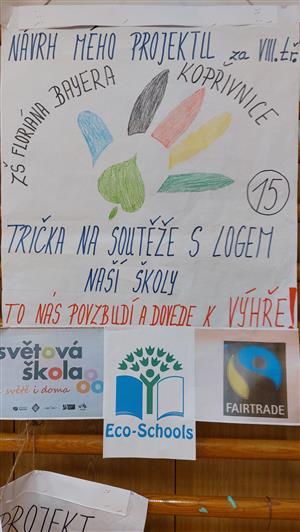 NÁVRH MÉHO PROJEKTU za VIII. tř.
ZŠ FLORIÁNA BAYERA KOPŘIVNICE
15
TRIČKA NA SOUTĚŽE S LOGEM
NAŠÍ ŠKOLY
TO NÁS POVZBUDÍ A DOVEDE K VÝHŘE!
světová
škola
světě i doma
Eco-Schools
FAIRTRADE
PROJEKT